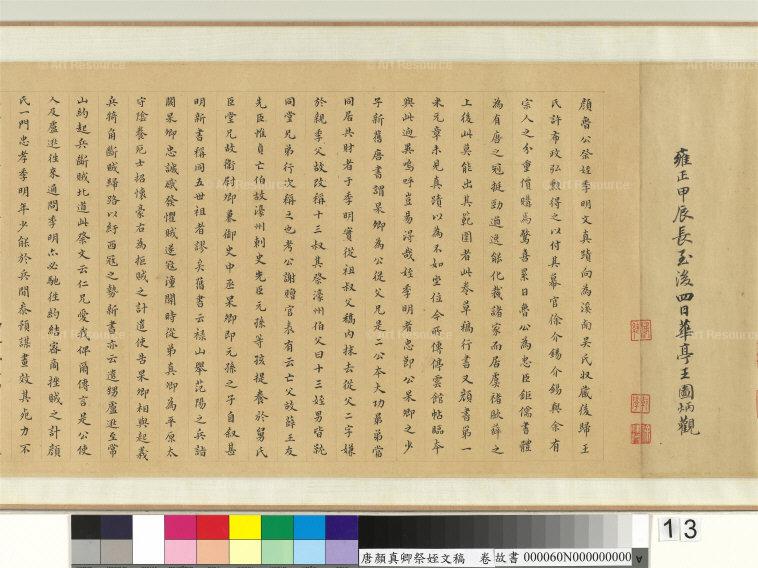 雍正甲辰長至後四日華亭王圖炳觀
顏魯公祭姪季明文真蹟向為溪南吳氏收藏後歸王
氏許希政弘勲得之以付其幕官徐介錫介錫與余有
宗人之分重價購焉驚喜累日魯公為忠臣鉅儒書體
為有唐之冠挺勁遒逸能化裁諸家而居虞褚歐薛之
上後此莫能出其範圍者此卷草稿行書又顏書第一
米元章未見真蹟以為不如坐位今所傳停雲館帖臨本
與此迥異嗚呼豈易得哉姪季明者忠節公杲卿之少
子新舊唐書謂杲卿為公從父兄是 公本大功弟第當
同居共財者于季明實從祖叔父稿內抹去從父二字嫌
於親季父故改稱十三叔其祭濠州伯父曰十三姪男皆就
同堂兄弟行次稱之也考公謝贈官表有云亡父故薛王友
先臣惟貞亡伯故濠州刺史先臣元孫等孩提養於舅氏
臣堂兄故衛尉卿兼御史中丞杲卿即元孫之子自叙甚
明新書稱同五世祖者謬矣舊書云祿山舉范陽之兵詣
闕杲卿忠誠感發懼賊遂寇潼關時從弟真卿為平原太
守陰養死士招懷豪右為拒賊之計遣使告杲卿相與起義
兵犄角斷賊歸路以紓西寇之勢新書亦云遣甥盧逖至常
山約起兵斷賊北道此祭文云仁兄愛我俾爾傳言是公使
人及盧逖往來通問季明亦必馳往約結密商挫賊之計顏
氏一門忠孝季明年少能於兵間參預謀畫效其死力不
13
唐顏真卿祭姪文稿 卷 故書 000060N000000000